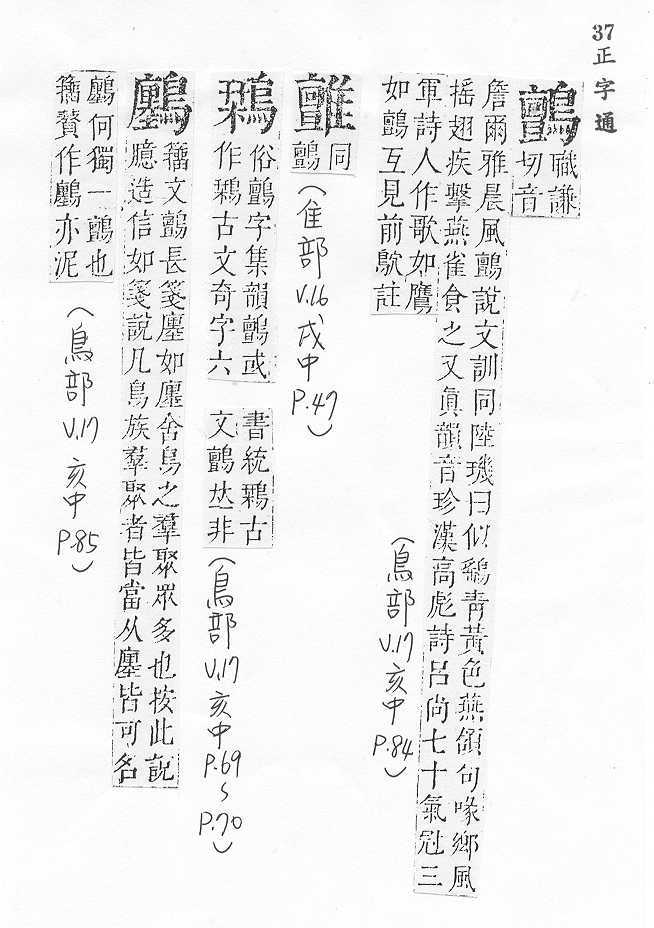 37 正字通
鸇
職謙
切音
詹爾雅晨風鸇說文訓同陸璣曰似鷂青黃色燕頷句喙鄉風
搖翅疾擊燕雀食之又眞韻音珍漢高彪詩呂尚七十氣冠三
軍詩人作歌如鷹
如鸇互見前鴥註
(鳥部 V.17 亥中 P.84)
䧴
同
鸇
(隹部 V.16 戌中 P.47)
俗鸇字集韻鸇或
作古文奇字六
書統古
文鸇𠀤非
(鳥部 V.17 亥中 P.69~P.70)
籒文鸇長箋廛如廛舍鳥之羣聚眾多也按此說
臆造信如箋說凡鳥族羣聚者皆當从廛皆可名
何獨一鸇也
籒贅作亦泥
(鳥部 V.17 亥中 P.85)